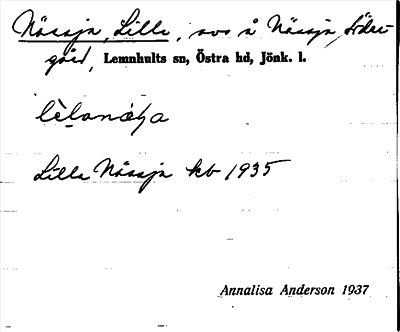 Nässja, Lilla, avs å Nässja, Söder-
gård, Lemnhults sn, Östra hd, Jönk. l.
Lilla Nässja kb 1935
Annalisa Anderson 1937